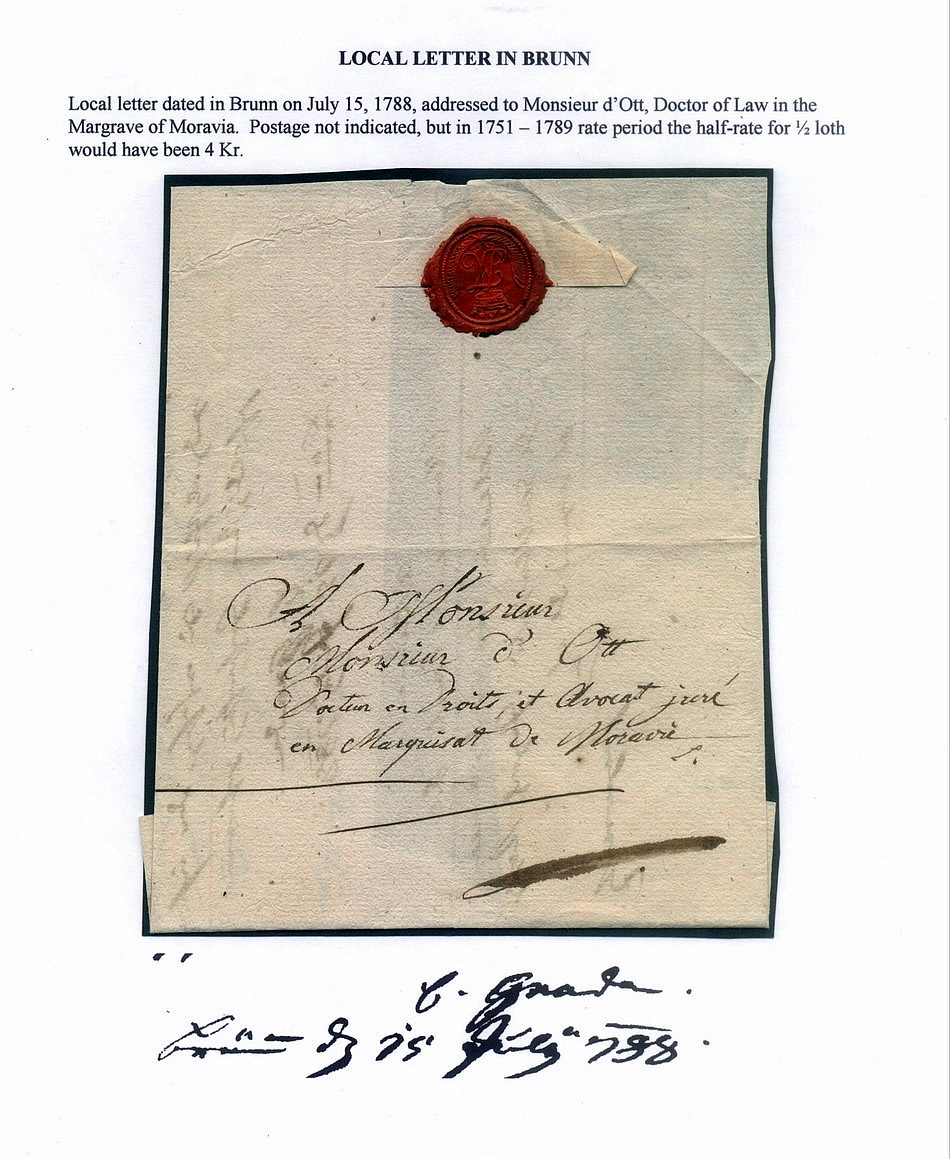 LOCAL LETTER IN BRUNN
Local letter dated in Brunn on July 15, 1788, addressed to Monsieur d’Ott, Doctor of Law in the
Margrave of Moravia. Postage not indicated, but in 1751 – 1789 rate period the half-rate for ½ loth
would have been 4 Kr.
A Monsieur
Monsieur d'Ott
Docteur en Droits, et Avocat juré
en Marquisat de Moravie
Brünn d 15 July 788.